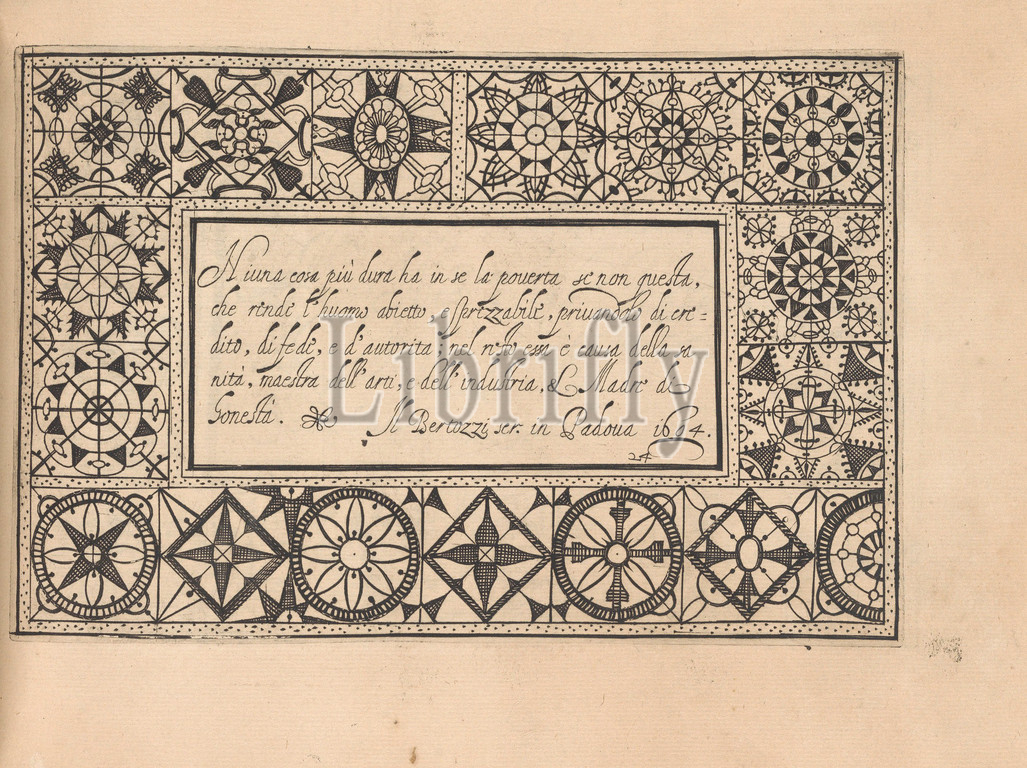 Niuna cosa più dura ha in se la pouerta se non questa,
che rende l'huomo abietto, e sprezzabile, priuandolo di cre=
dito, di fede, e d'autorita; nel resto essa è causa della sa
nità, maestra dell'arti, e dell'industria, & Madre de
honestà. Il Bertozzi scr. in Padoua 1604.
24
Librifly